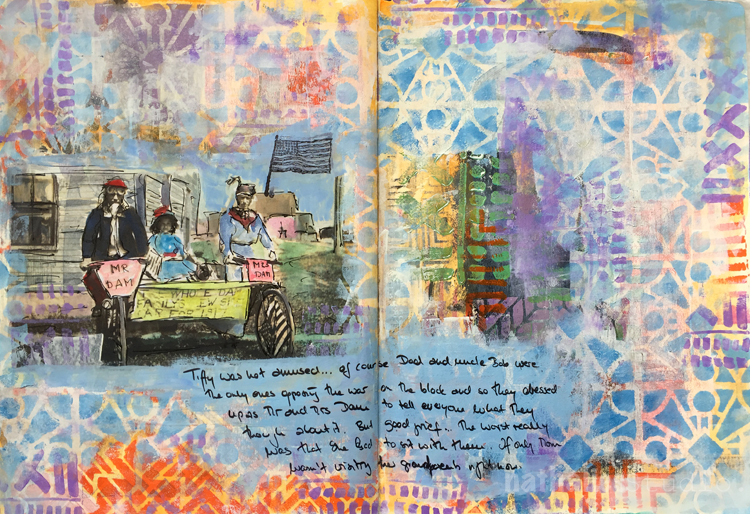 MR
DAM
MRS
DAM
WHOLE DA
Tiffy was not amused... of course Dad and uncle Bob were
the only ones opposing the war on the block and so they dressed
up as Mr and Mrs Dam to tell everyone what they
though about it. But good grief... The worst really
was that she had to sit with them. If only Mom
wasn't visiting the grandparents right now.